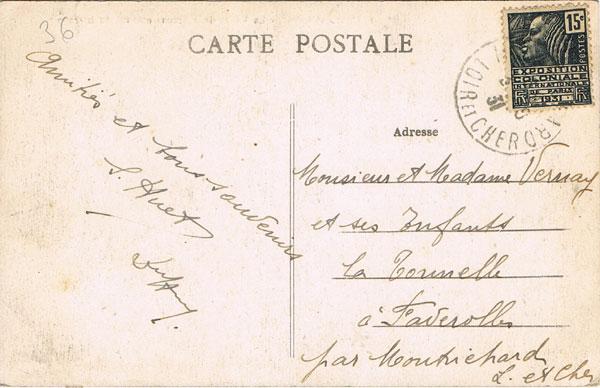 36
CARTE POSTALE
15c
POSTES
EXPOSITION
COLONIALE
INTERNATIONALE
DE PARIS
1931
RF RF
31
LOIR ET CHER
Amitiés et bons souvenirs
S. Huet
Adresse
Monsieur et Madame Vernay
et ses Enfants
la Tournelle
à Faverolles
par Montrichard
L. et Cher